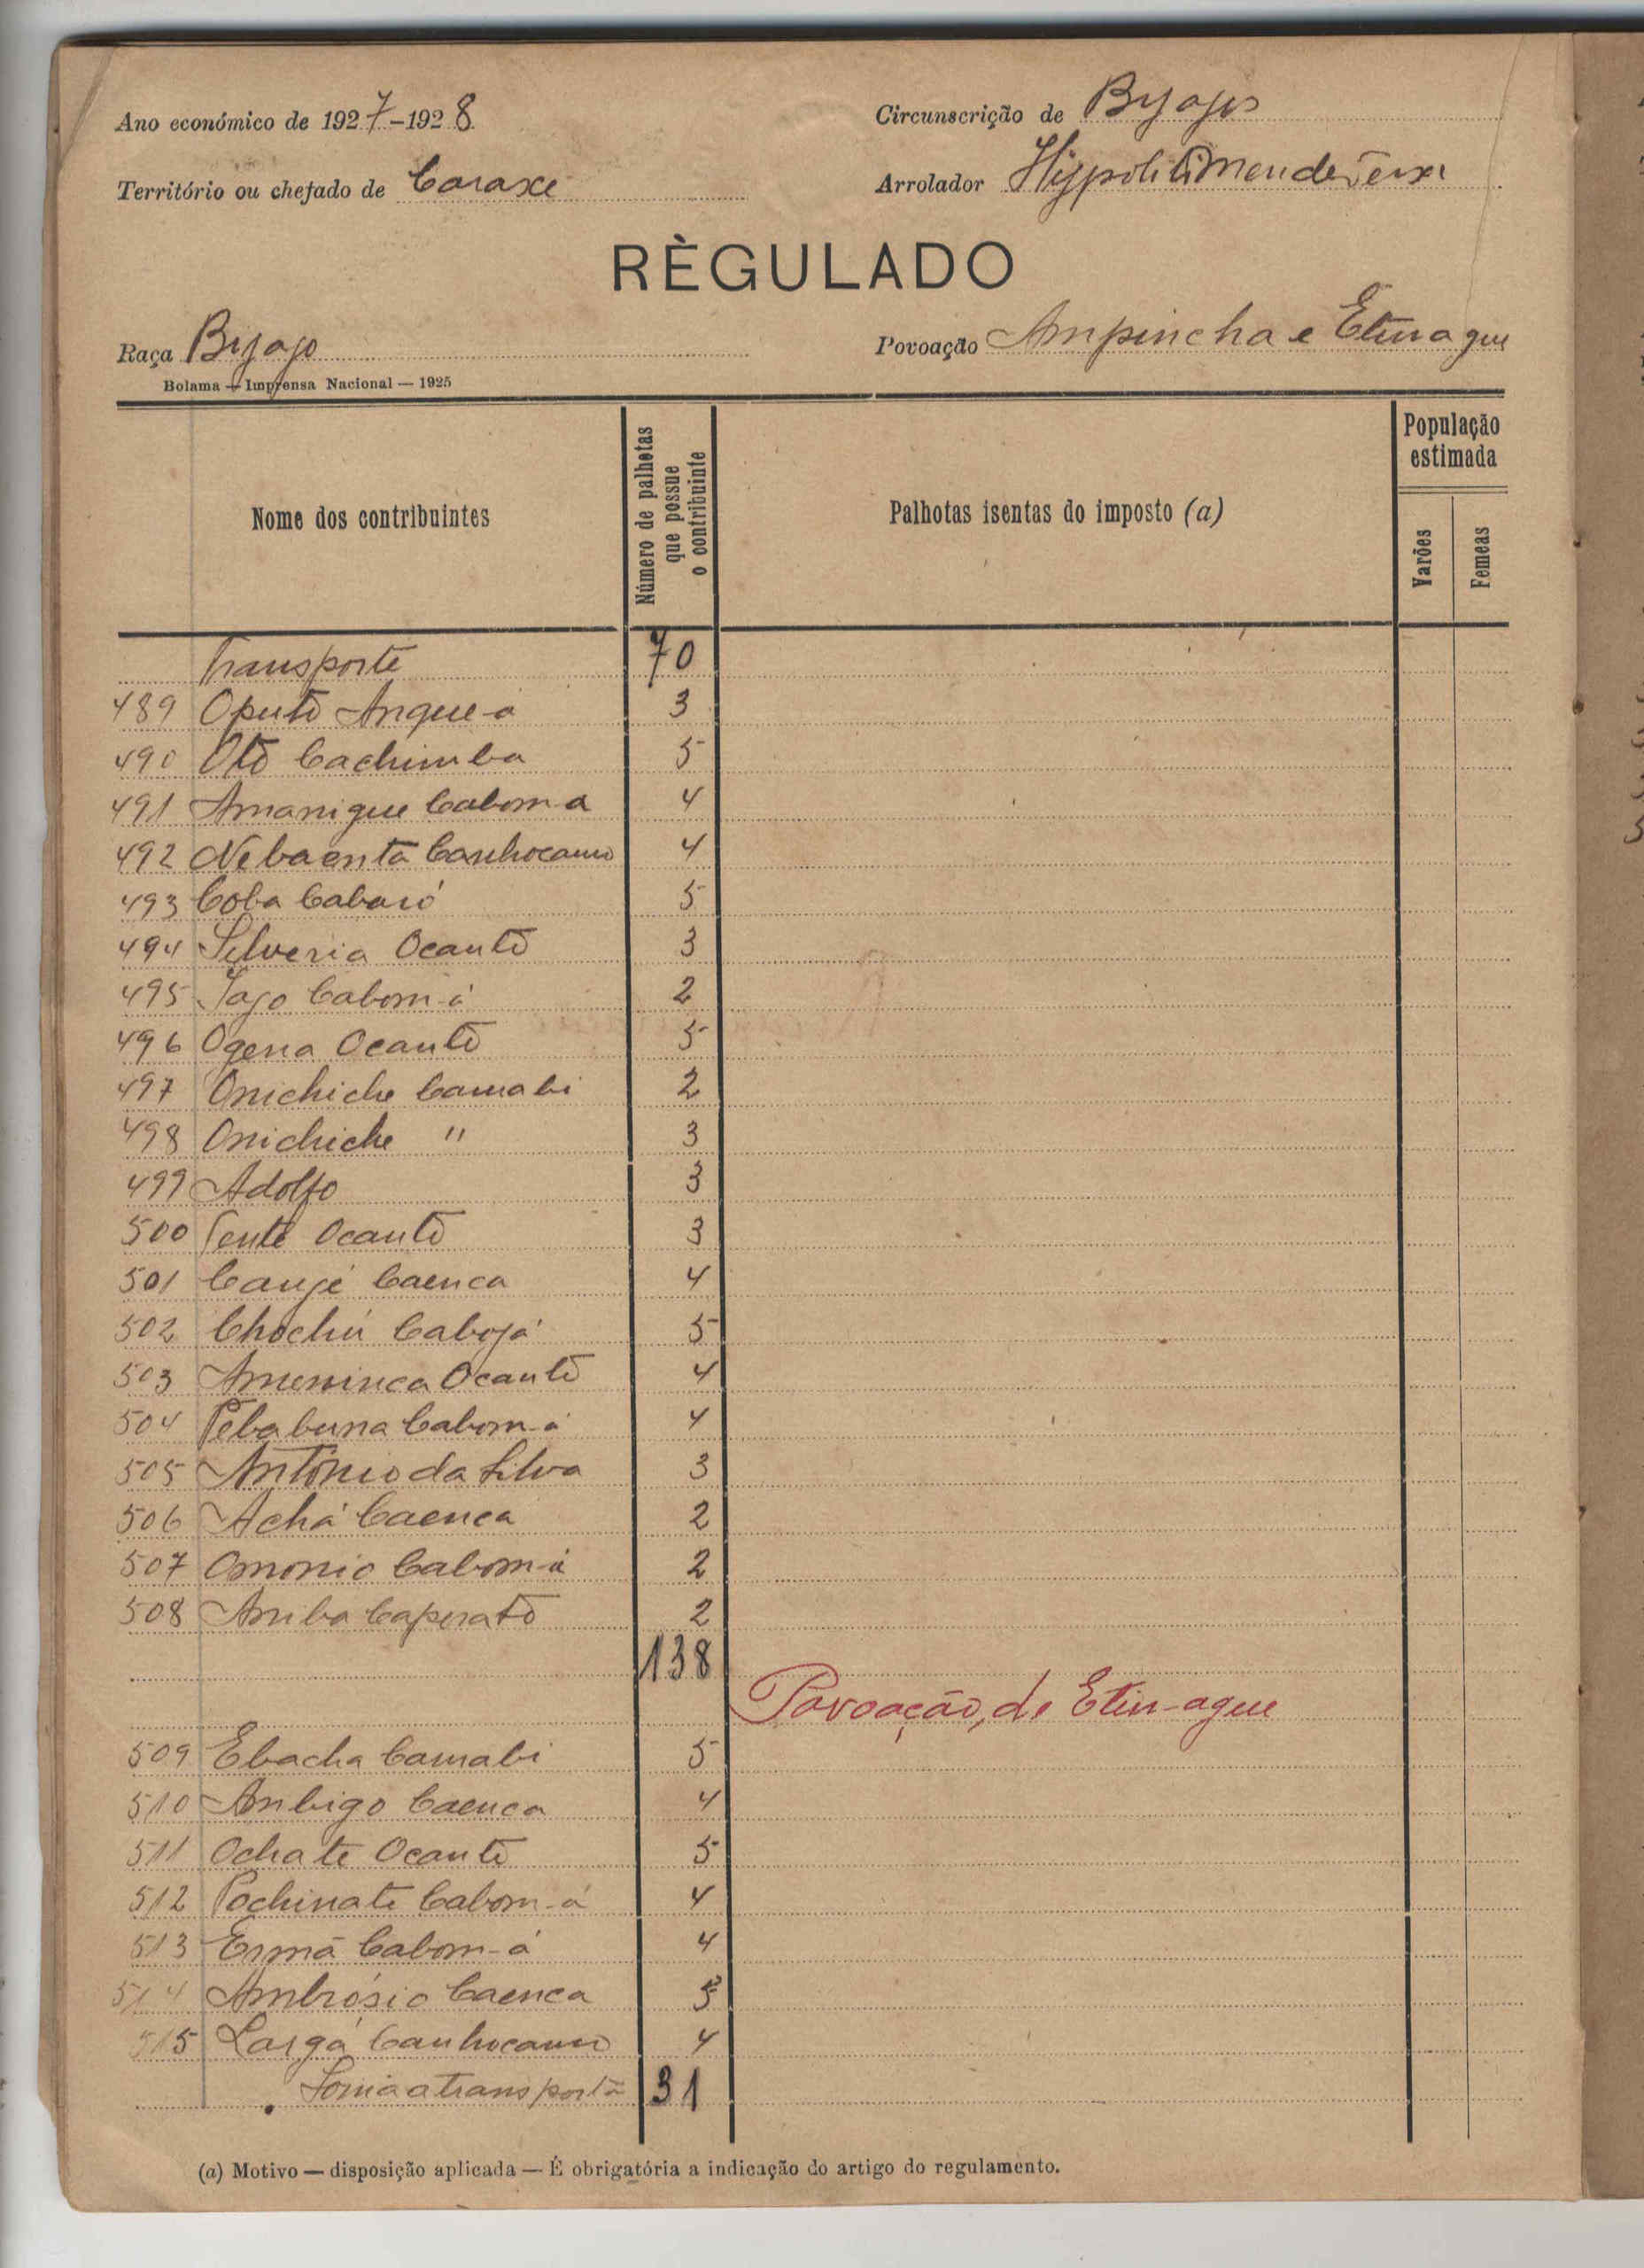 Ano económico de 1927-1928
Circunscrição de Byagos
Território ou chefado de Caraxe
Arrolador Hyppolito Mendes
RÈGULADO
Raça Byago
Povoação Ampincha e Etinague
Bolama — Imprensa Nacional — 1925
Nome dos contribuintes
Número de palhotas que possue o contribuinte
Palhotas isentas do imposto (a)
População estimada
Varões
Femeas
Transporte 70
489 Oputô Anque-á 3
490 Otô Cachimba 5
491 Amanigue Cabom-a 4
492 Nebaenta Canhocamo 4
493 Coba Cabaió 5
494 Silveria Ocantô 3
495 Jago Cabom-á 2
496 Ogena Ocantô 5
497 Onichiche Camabi 2
498 Onichiche " 3
499 Adolfo 3
500 Tente Ocantô 3
501 Canjé Caenca 4
502 Chochú Cabojá 5
503 Ameninca Ocantô 4
504 Pebabuna Cabom-á 4
505 António da Silva 3
506 Achá Caenca 2
507 Omonic Cabom-á 2
508 Aniba Caperatô 2
138
Povoação, de Etin-ague
509 Ebacha Camabi 5
510 Ambigo Caenca 4
511 Ochate Ocantô 5
512 Pochinate Cabom-á 4
513 Ermâ Cabom-á 4
514 Ambrósio Caenca 5
515 Largá Canhocamo 4
Soma a transportar 31
(a) Motivo — disposição aplicada — É obrigatória a indicação do artigo do regulamento.